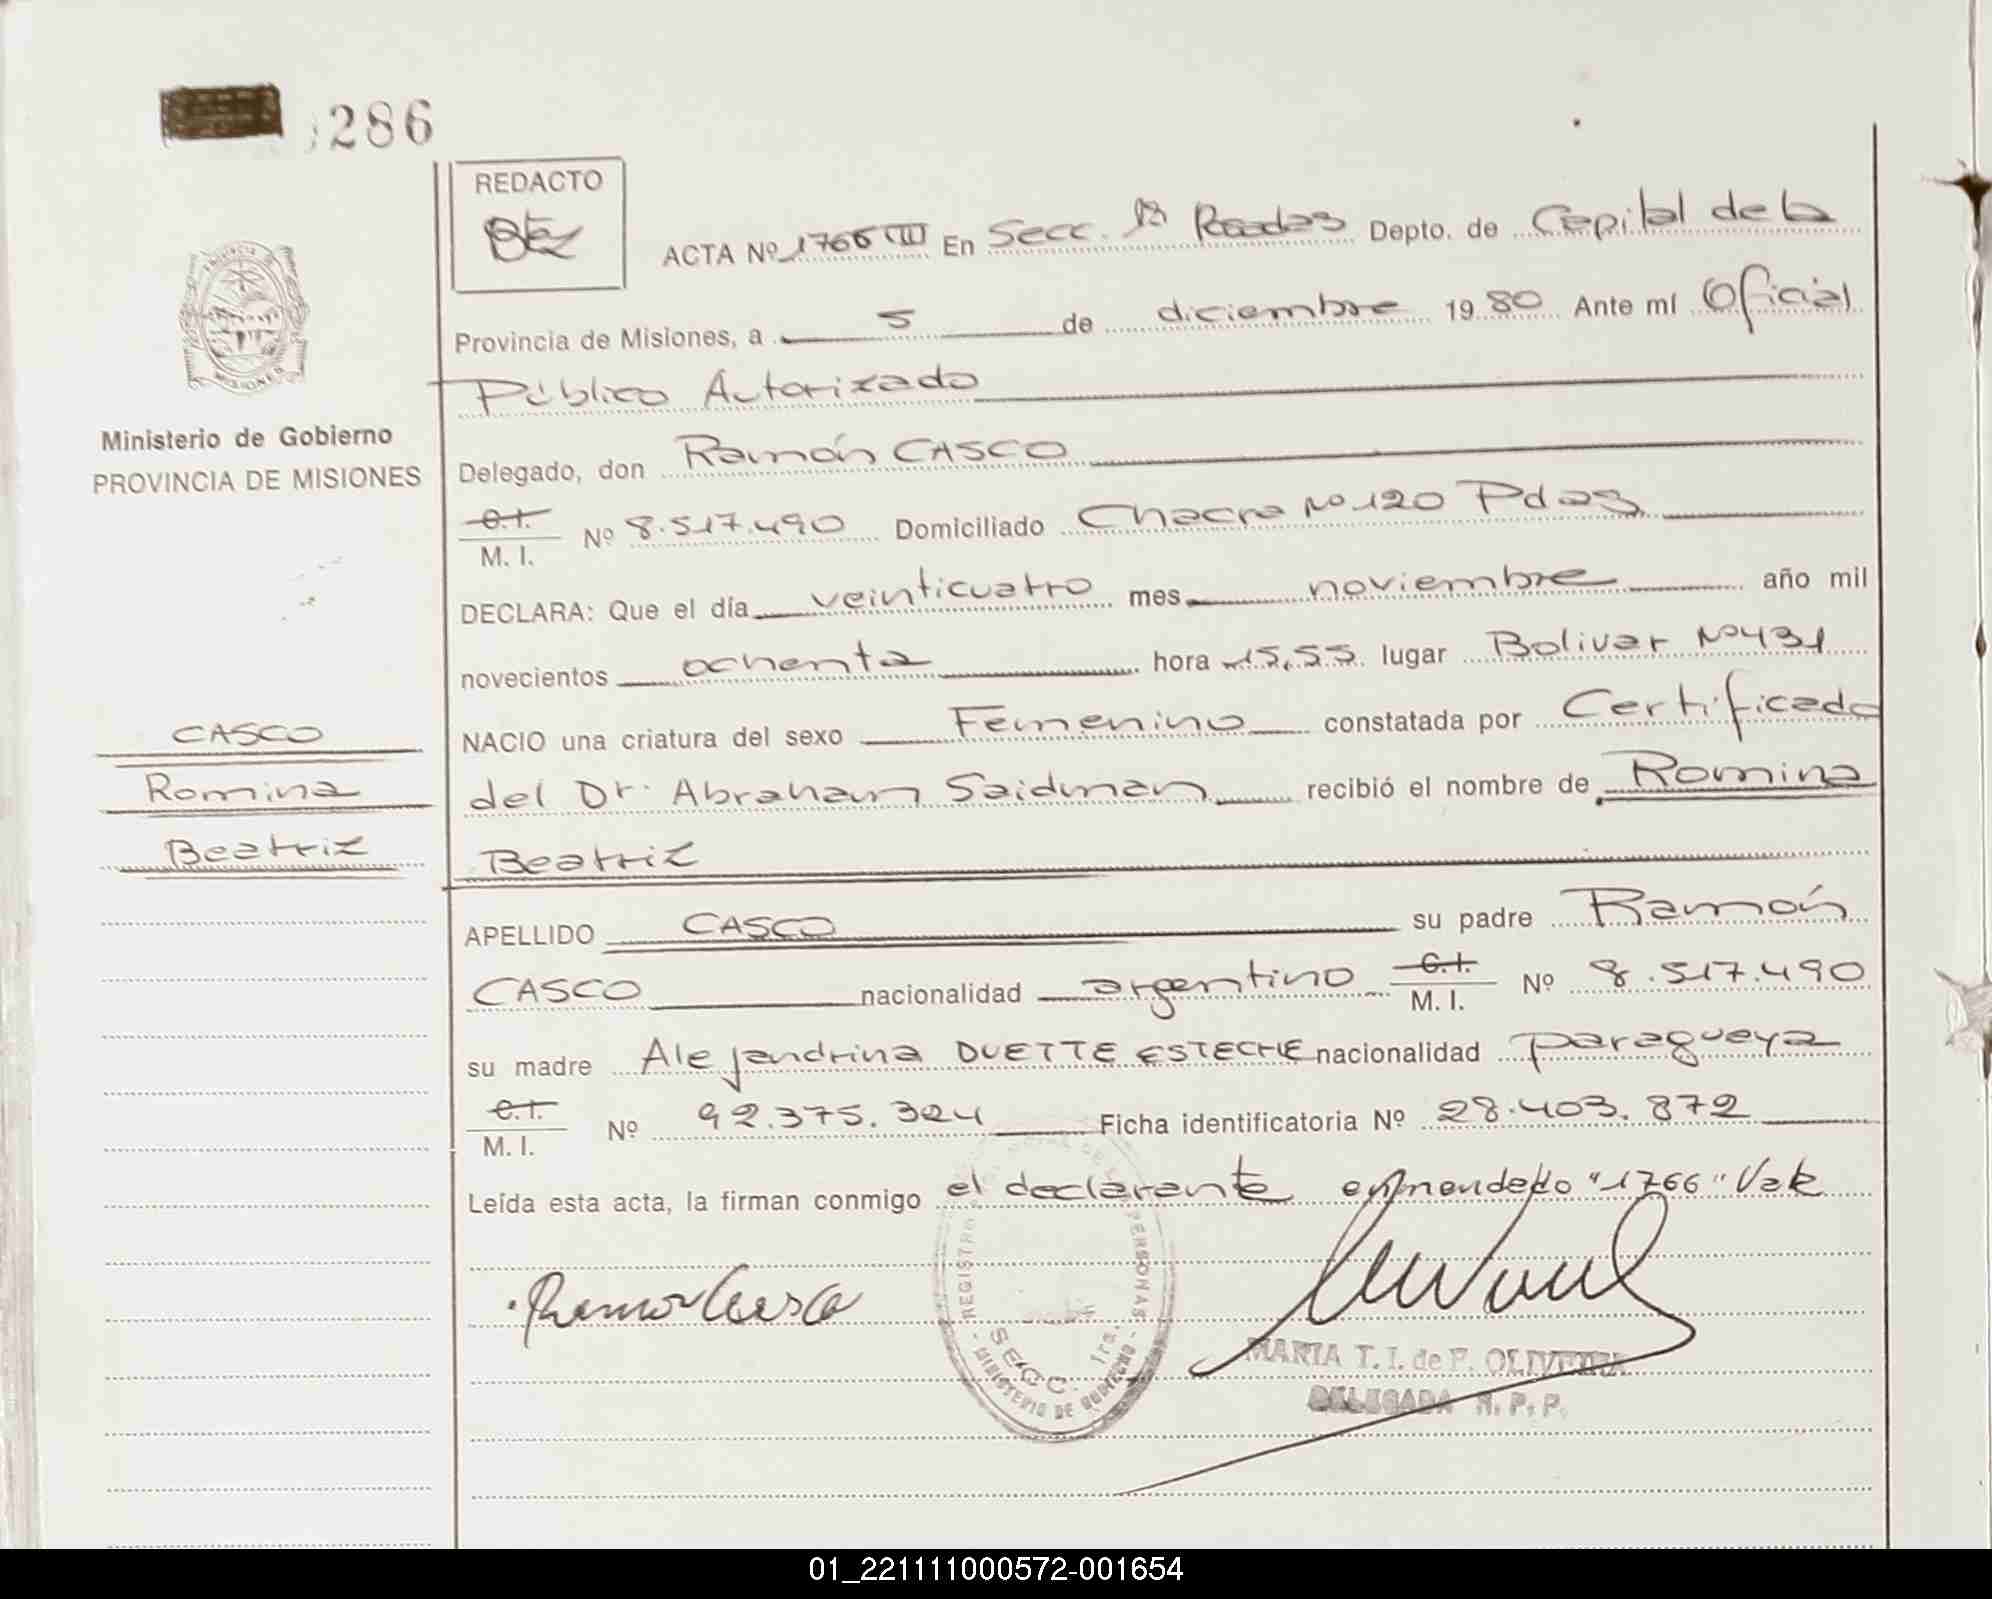 286
REDACTO
ACTA Nº 1766 III En Secc. 1ª Posadas Depto. de Capital de la
Provincia de Misiones, a 5 de diciembre 1980 Ante mí Oficial
Público Autorizado
Ministerio de Gobierno
PROVINCIA DE MISIONES
Delegado, don Ramón CASCO
C.I.
M. I. Nº 8.517.490 Domiciliado Chacra Nº 120 Pdas
DECLARA: Que el día veinticuatro mes noviembre año mil
novecientos ochenta hora 15,55 lugar Bolivar Nº 431
CASCO
Romina
Beatriz
NACIO una criatura del sexo Femenino constatada por Certificado
del Dr. Abraham Saidman recibió el nombre de Romina
Beatriz
APELLIDO CASCO su padre Ramón
CASCO nacionalidad argentino C.I. M. I. Nº 8.517.490
su madre Alejandrina DUETTE ESTECHE nacionalidad paraguaya
C.I.
M. I. Nº 92.375.324 Ficha identificatoria Nº 28.403.872
Leída esta acta, la firman conmigo el declarante enmendado "1766" Vale
Ramon Casco
REGISTRO PERSONAS
SECC. 1ra.
MINISTERIO DE GOBIERNO
MARIA T. I. de F. OLIVEIRA
DELEGADA R. P. P.
MISIONES
01_221111000572-001654